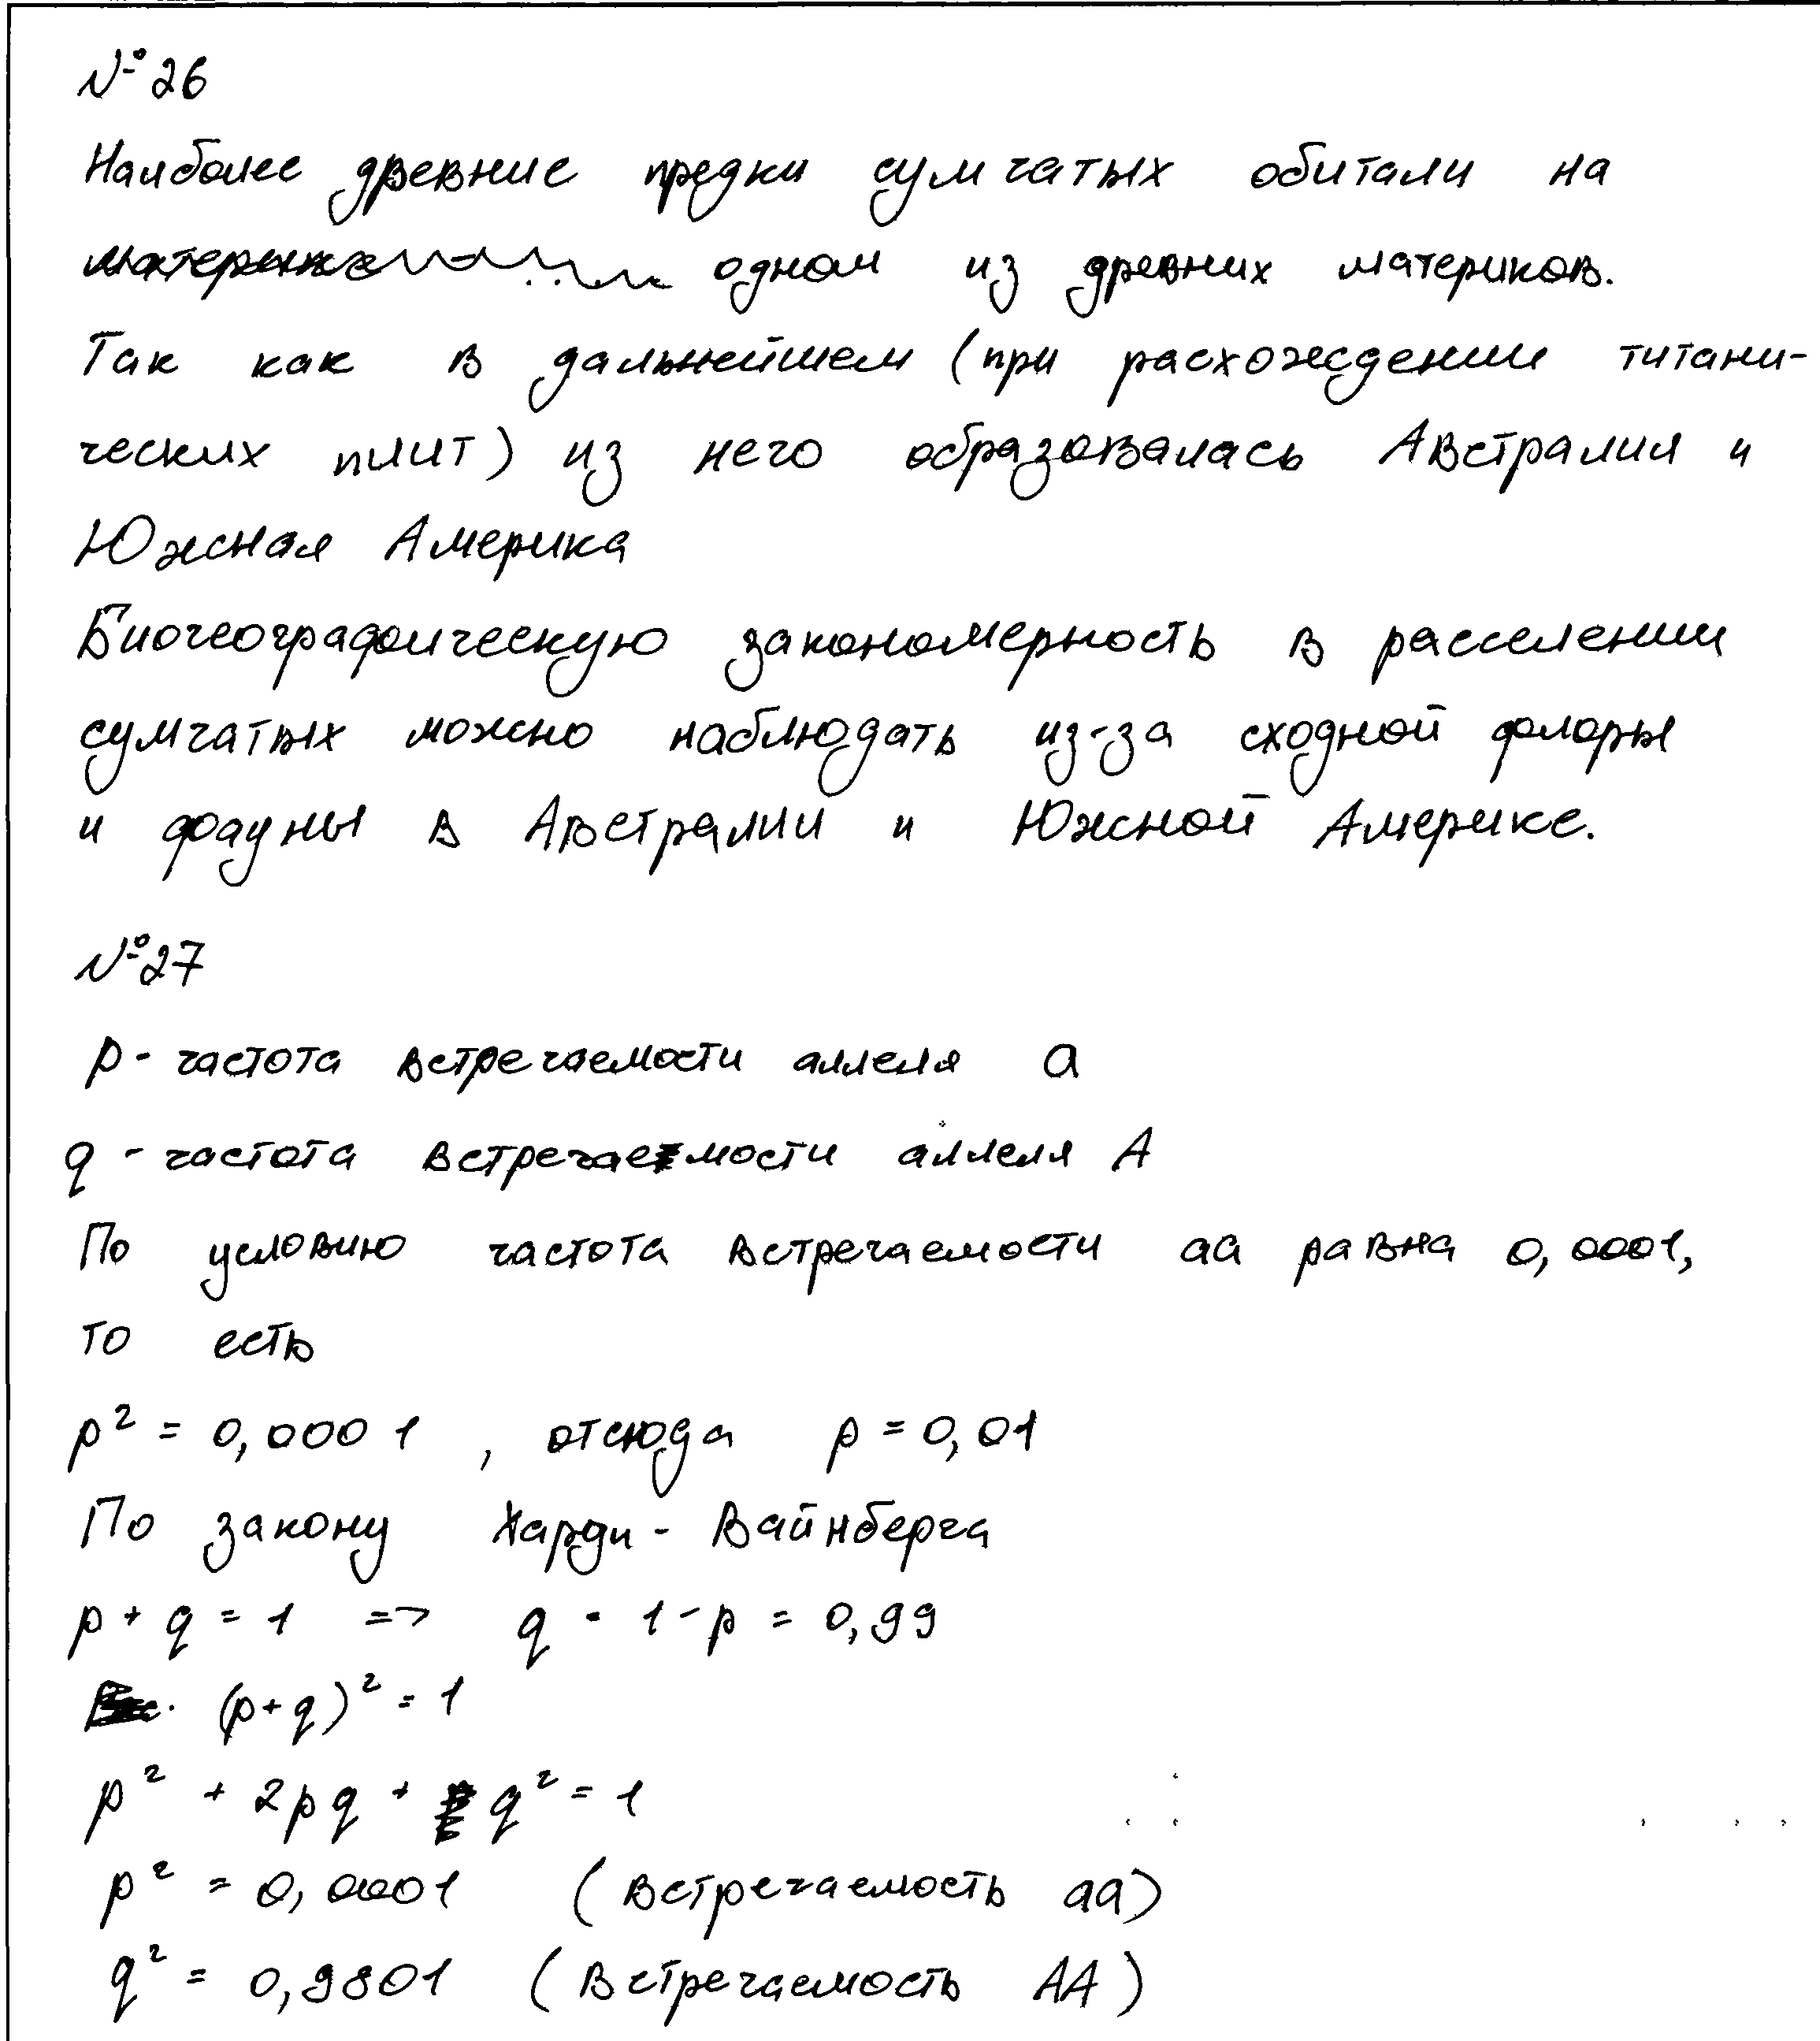 № 26
Наиболее древние предки сумчатых обитали на
одном из древних материков.
Так как в дальнейшем (при расхождении титани-
ческих плит) из него образовалась Австралия и
Южная Америка
Биогеографическую закономерность в расселении
сумчатых можно наблюдать из-за сходной флоры
и фауны в Австралии и Южной Америке.
№ 27
p - частота встречаемости аллеля a
q - частота встречаемости аллеля A
По условию частота встречаемости aa равна 0,0001,
то есть
p² = 0,0001 , отсюда p = 0,01
По закону Харди - Вайнберга
p + q = 1 => q = 1 - p = 0,99
(p+q)² = 1
p² + 2pq + q² = 1
p² = 0,0001 (встречаемость aa)
q² = 0,9801 (встречаемость AA)